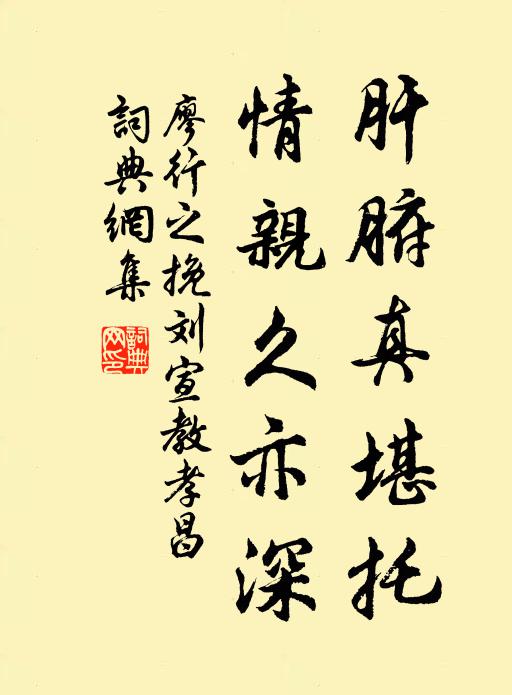 肝腑真堪托
情親久亦深
廖行之挽刘宣教孝昌
詞典網集
詞典網印